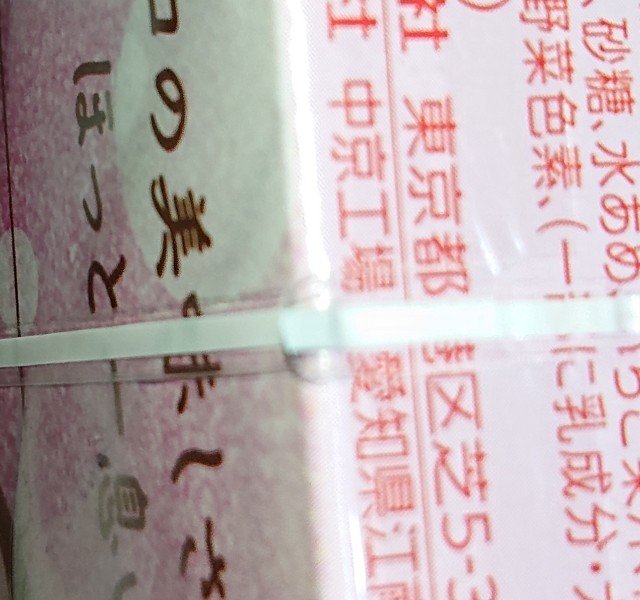 、砂糖、水あめ、 ちご果
野菜色素、(一 に乳成分・
社 東京都 区芝5-3
社 中京工場 愛知県江南
の美 しさ
ほっと一息